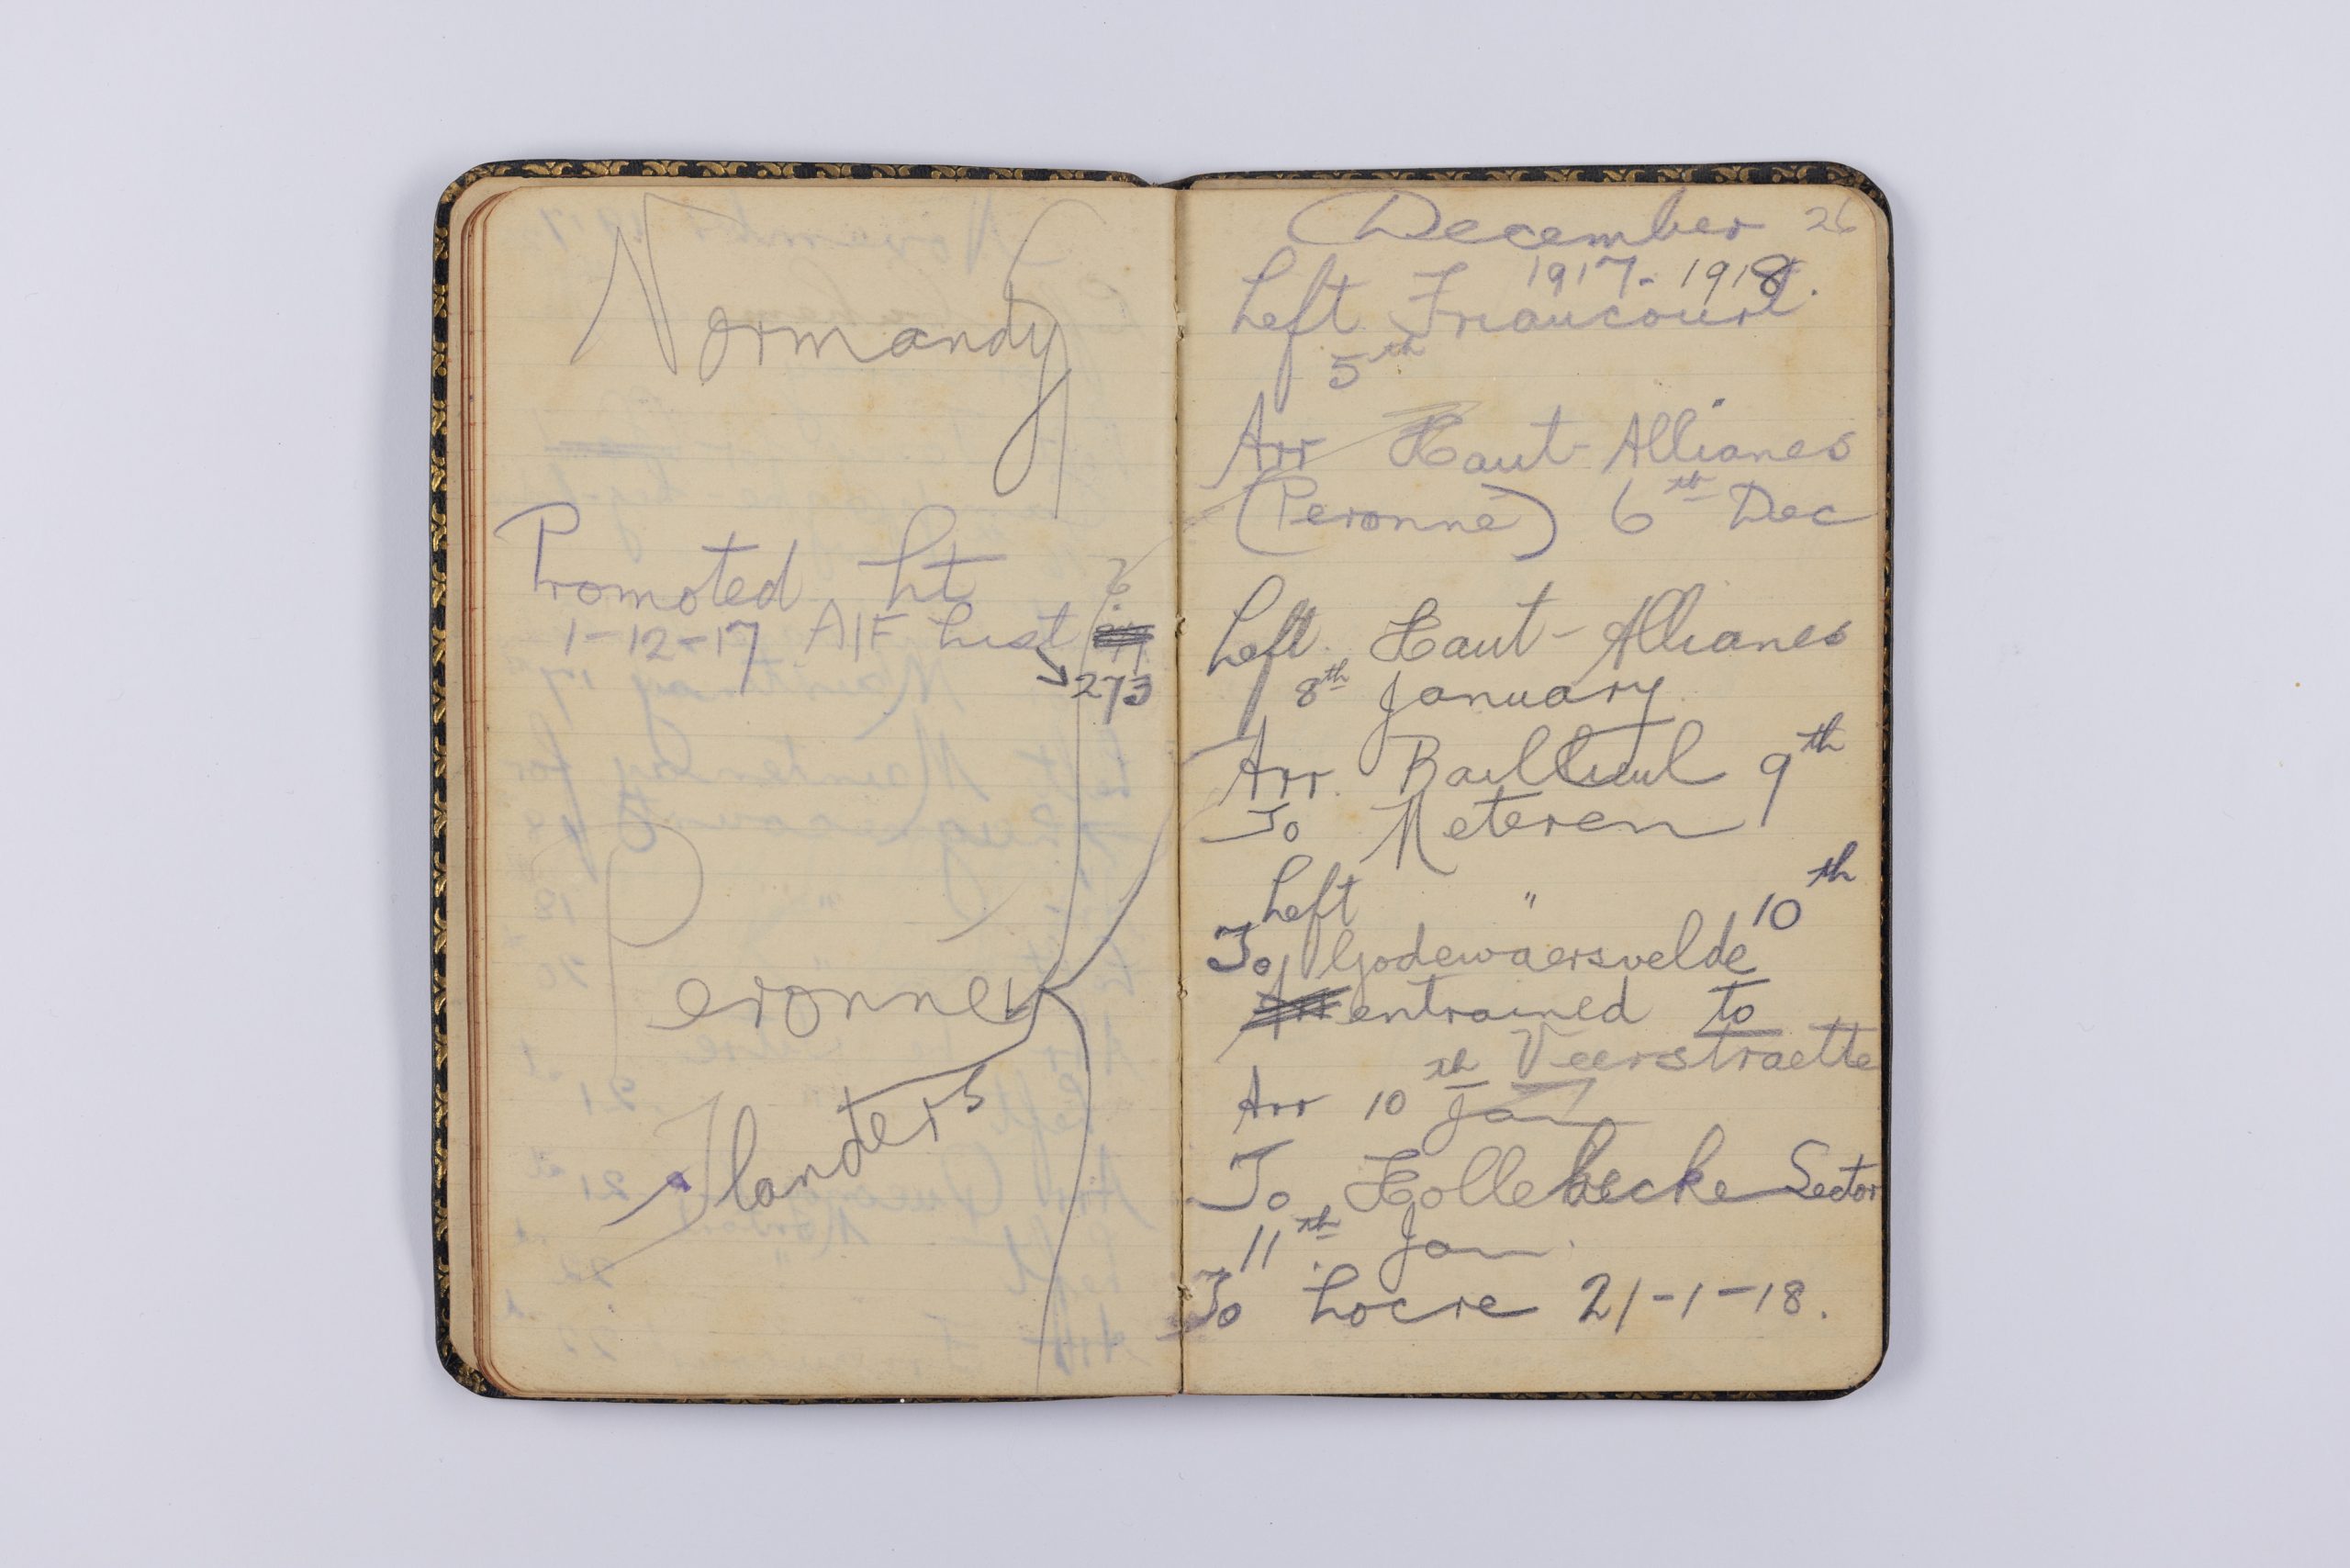 Normandy
Promoted Lt
1-12-17 AIF List
273
Peronne
Flanders
December 26
1917-1918.
Left Friaucourt
5th
Arr Haut-Allianes
(Peronne) 6th Dec
Left Haut-Allianes
8th January
Arr. Bailleul 9th
To Meteren
Left " 10th
To Godewaersvelde
entrained to
Veerstraette
Arr 10th Jan
To Hollebecke Sector
11th Jan.
To Locre 21-1-18.